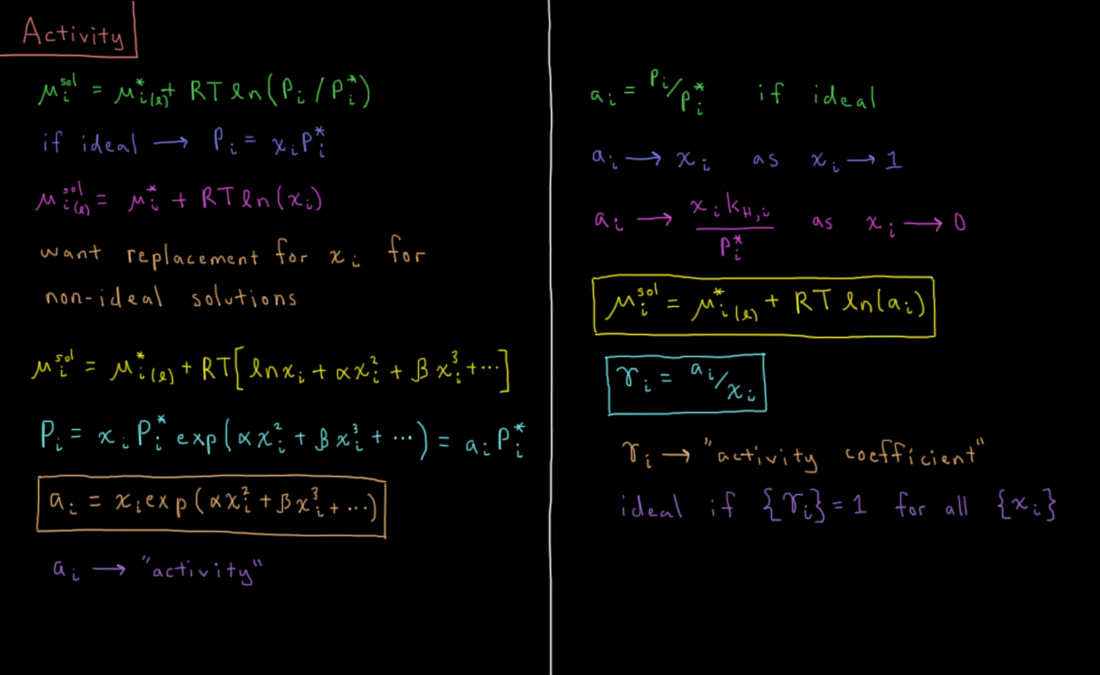 Activity
μᵢˢᵒˡ = μ*ᵢ₍ₗ₎ + RT ln(Pᵢ / Pᵢ*)
if ideal → Pᵢ = xᵢPᵢ*
μᵢ₍ₗ₎ˢᵒˡ = μᵢ* + RT ln(xᵢ)
want replacement for xᵢ for
non-ideal solutions
μᵢˢᵒˡ = μ*ᵢ₍ₗ₎ + RT[ln xᵢ + αxᵢ² + βxᵢ³ + ⋯]
Pᵢ = xᵢPᵢ* exp(αxᵢ² + βxᵢ³ + ⋯) = aᵢPᵢ*
aᵢ = xᵢ exp(αxᵢ² + βxᵢ³ + ⋯)
aᵢ → "activity"
aᵢ = Pᵢ/Pᵢ* if ideal
aᵢ → xᵢ as xᵢ → 1
aᵢ → xᵢ k_{H,i} / Pᵢ* as xᵢ → 0
μᵢˢᵒˡ = μ*ᵢ₍ₗ₎ + RT ln(aᵢ)
γᵢ = aᵢ/xᵢ
γᵢ → "activity coefficient"
ideal if {γᵢ} = 1 for all {xᵢ}